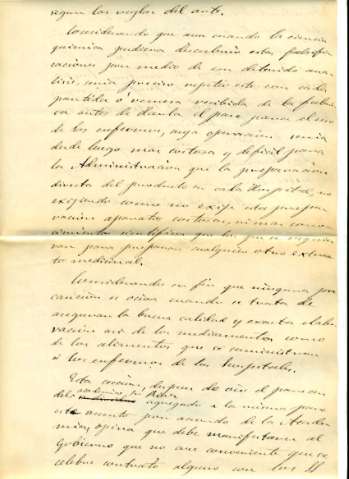 segun las reglas del arte.
Considerando que aun cuando la ciencia
quimica pudiera descubrir estas falsifi-
caciones por medio de un detenido ana-
lisis, seria preciso repetir este con cada
partida ó remesa recibida de la fabri-
ca antes de darla al paso para el uso
de los enfermos, cuya operacion seria
desde luego mas costosa y dificil para
la Administracion que la preparacion
directa del producto en cada Hospital, no
exigiendo como no exige esta prepa-
racion aparatos costosos, ni mas cono-
cimientos cientificos que los que se requie-
ren para preparar cualquier otro extrac-
to medicinal.
Considerando en fin que ninguna pre
caucion es ociosa cuando se trata de
asegurar la buena calidad y exacta elabo
racion asi de los medicamentos como
de los alimentos que se suministran
á los enfermos de los hospitales.
Esta seccion, despues de oir el parecer
del agregado a la misma para
este asunto por acuerdo de la Acade
mia, opina que debe manifestarse al
Gobierno que no cree conveniente que se
celebre contrato alguno con los